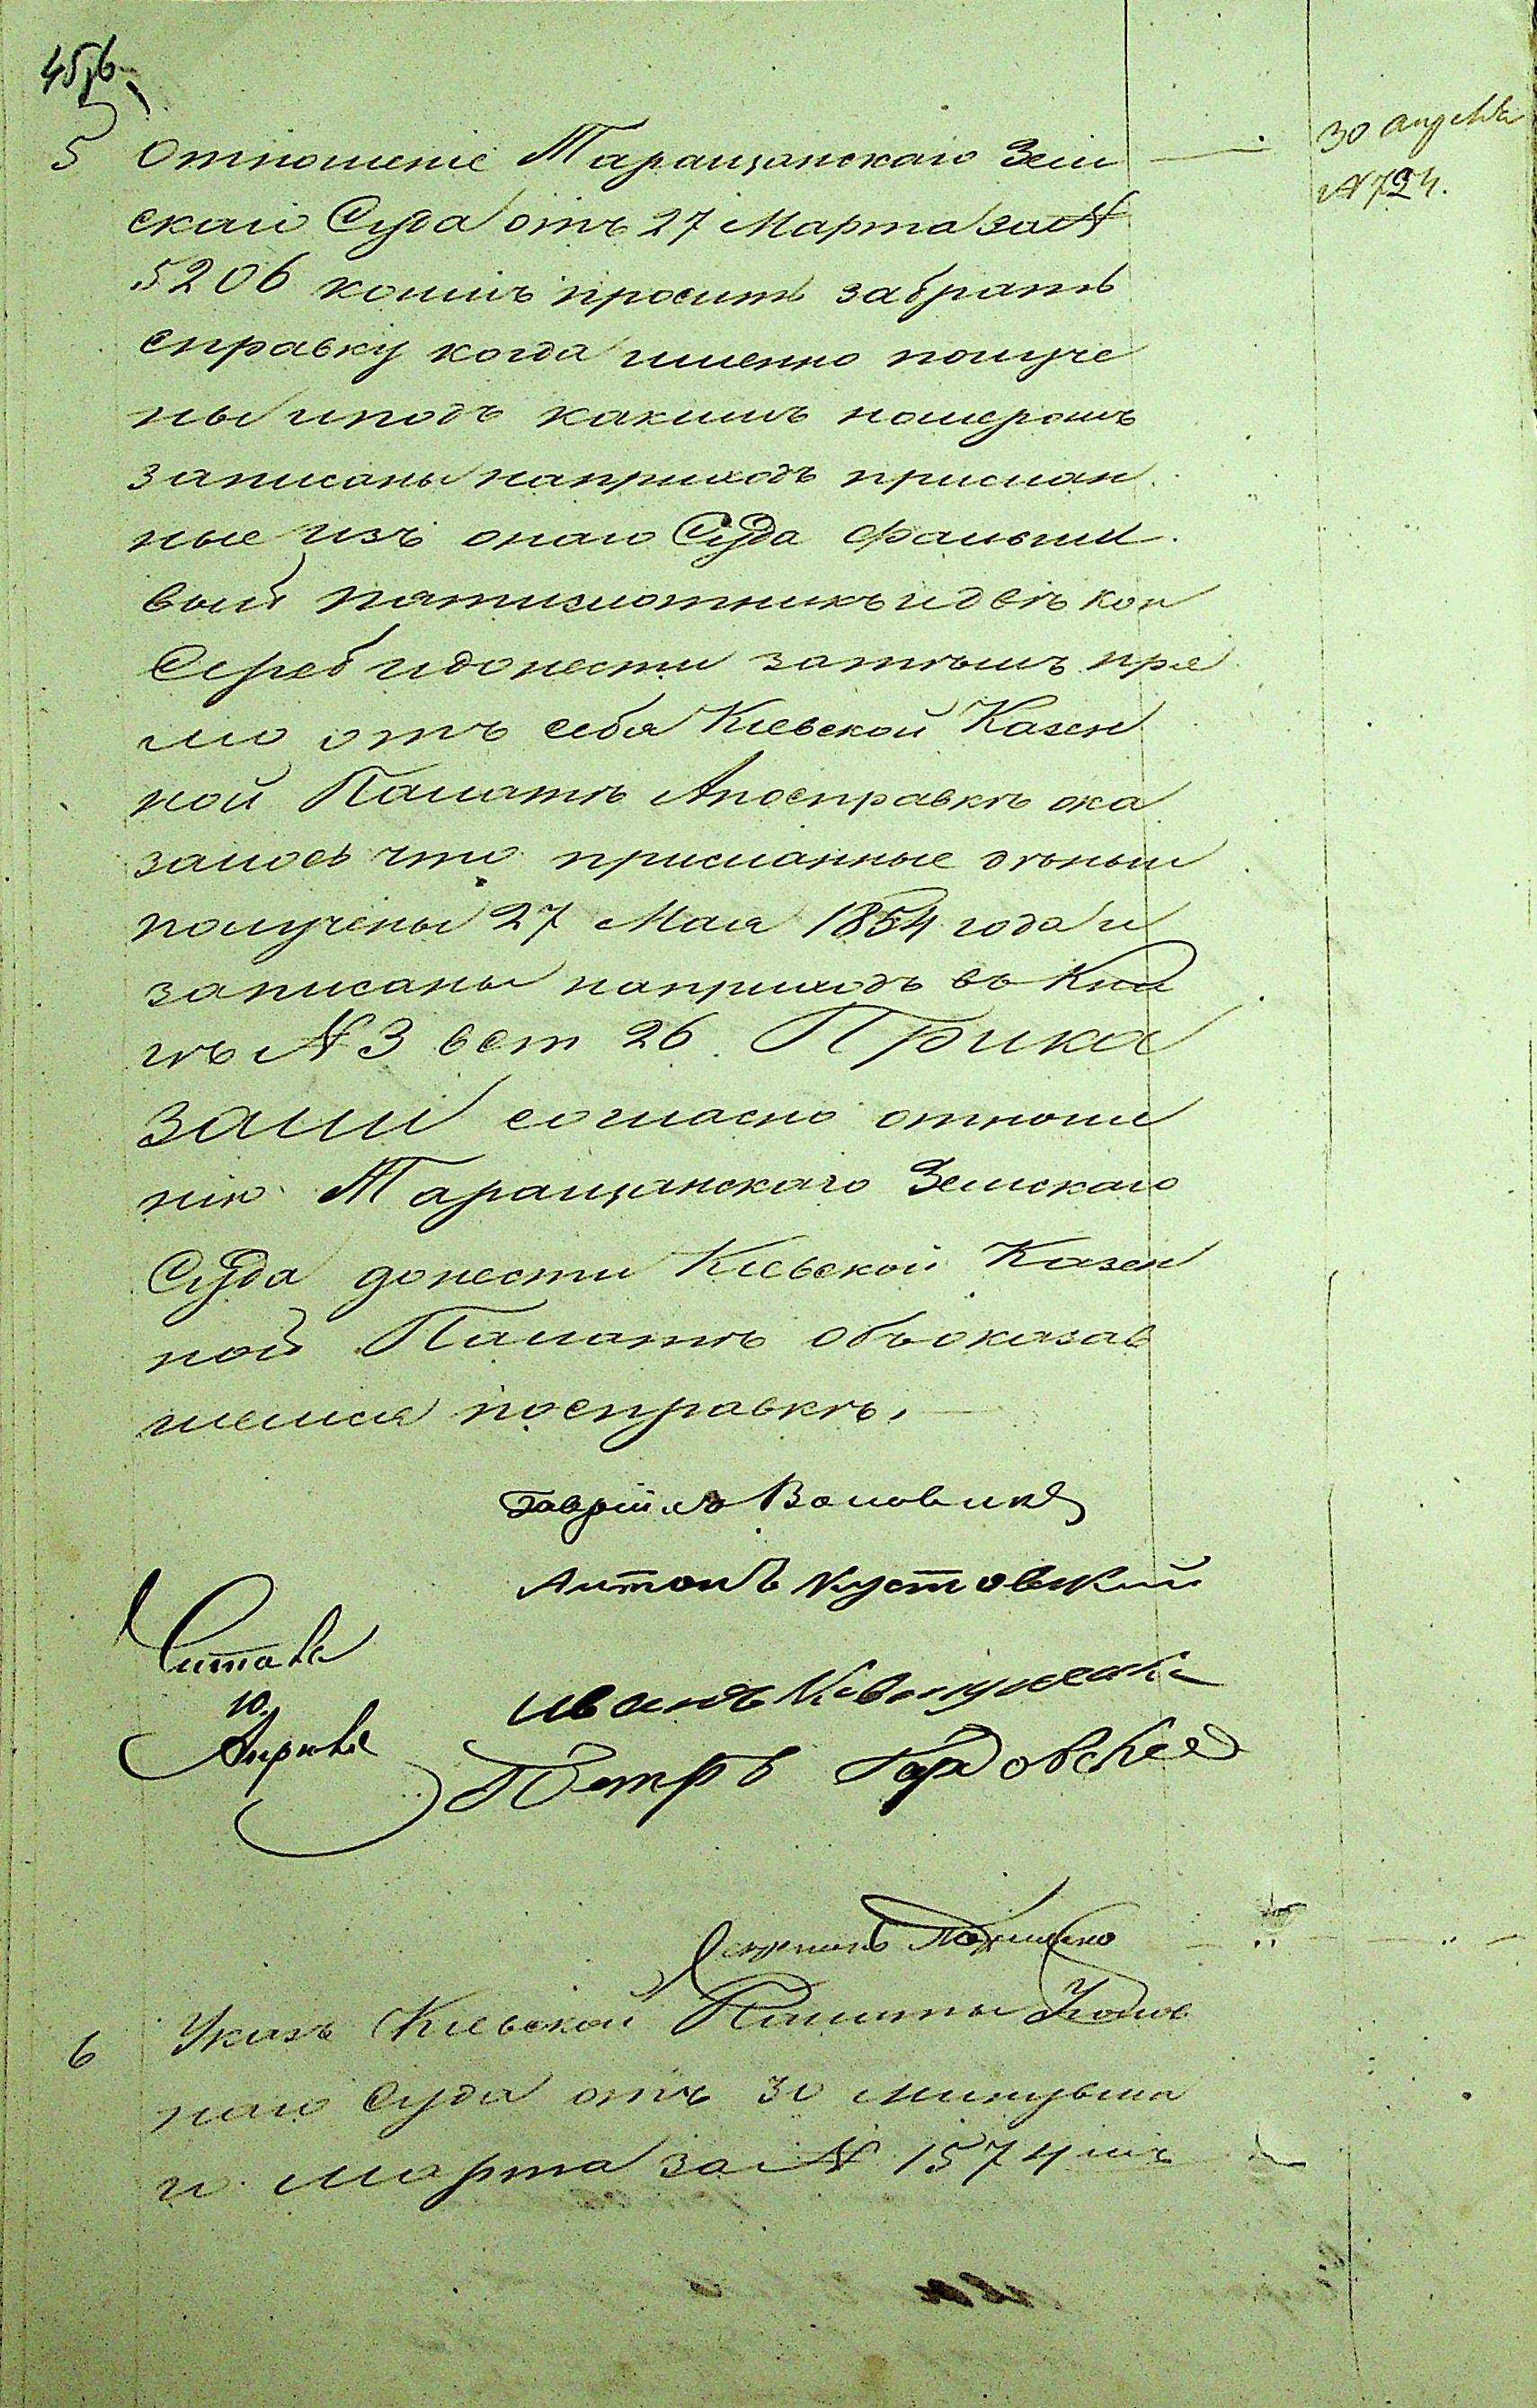 5 Отношеніе Таращанскаго Зем
30 апреля
№ 724.
скаго Суда отъ 27 Марта за №
5206 коимъ проситъ забрать
справку когда именно получе
ны иподъ какимъ номеромъ
записаны наприходъ прислан
ные изъ онаго Суда фальши
вый пятизлотникъ идвѣ коп
Сереб идонести затѣмъ пря
мо отъ себя Кіевской Казен
ной Палатѣ Апосправкѣ ока
залось что присланные деньги
получены 27 Мая 1854 года и
записаны наприходъ въ Кни
гѣ № 3 вст 26. Прика
зали согласно отноше
нію Таращанскаго Земскаго
Суда донести Кіевской Казен
ной Палатѣ объоказав
шемся посправкѣ.
Гаврiилъ Воловикъ
Антонъ Кустовский
Читалъ
10
Апреля
Иванъ
Петръ
6 Указъ Кіевской Палаты Уголов
наго Суда отъ 30 минувша
го Марта за № 1574 мъ